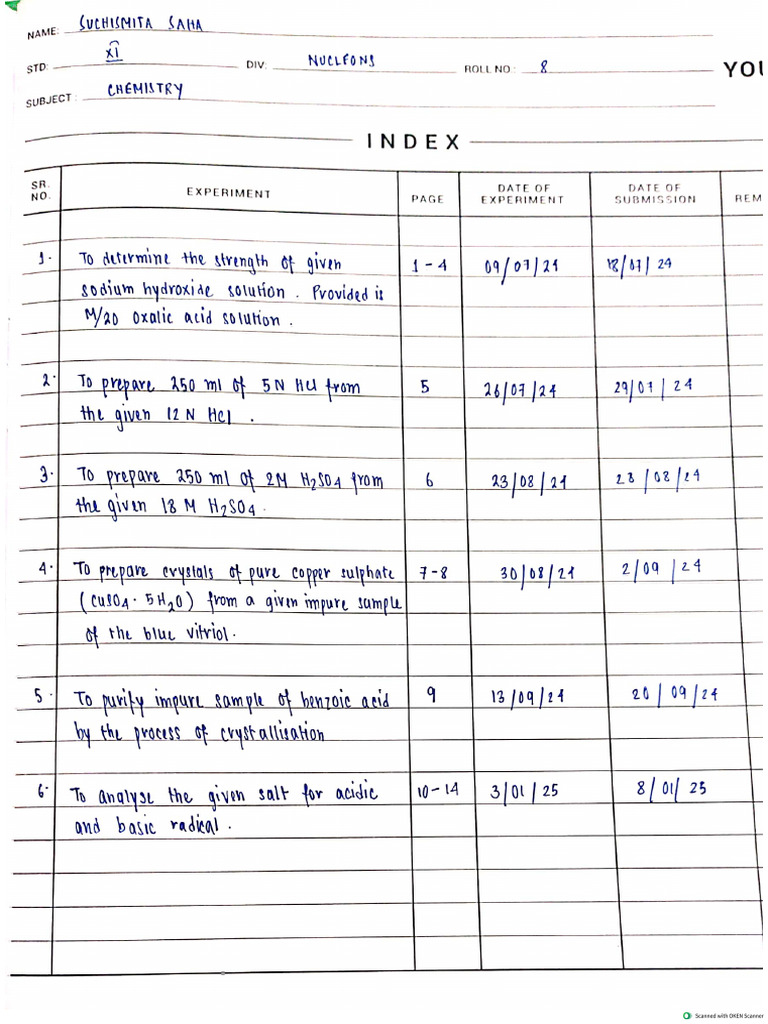 NAME: SUCHISMITA SAHA
STD: XI DIV: NUCLEONS ROLL NO: 8 YOU
SUBJECT: CHEMISTRY
INDEX
SR. NO. EXPERIMENT PAGE DATE OF EXPERIMENT DATE OF SUBMISSION REM
1. To determine the strength of given 1-4 09/07/24 18/07/24
sodium hydroxide solution. Provided is
M/20 oxalic acid solution.
2. To prepare 250 ml of 5N HCl from 5 26/07/24 29/07/24
the given 12 N HCl.
3. To prepare 250 ml of 2M H₂SO₄ from 6 23/08/24 28/08/24
the given 18 M H₂SO₄.
4. To prepare crystals of pure copper sulphate 7-8 30/08/24 2/09/24
(CuSO₄·5H₂O) from a given impure sample
of the blue vitriol.
5. To purify impure sample of benzoic acid 9 13/09/24 20/09/24
by the process of crystallisation
6. To analyse the given salt for acidic 10-14 3/01/25 8/01/25
and basic radical.
Scanned with OKEN Scanner